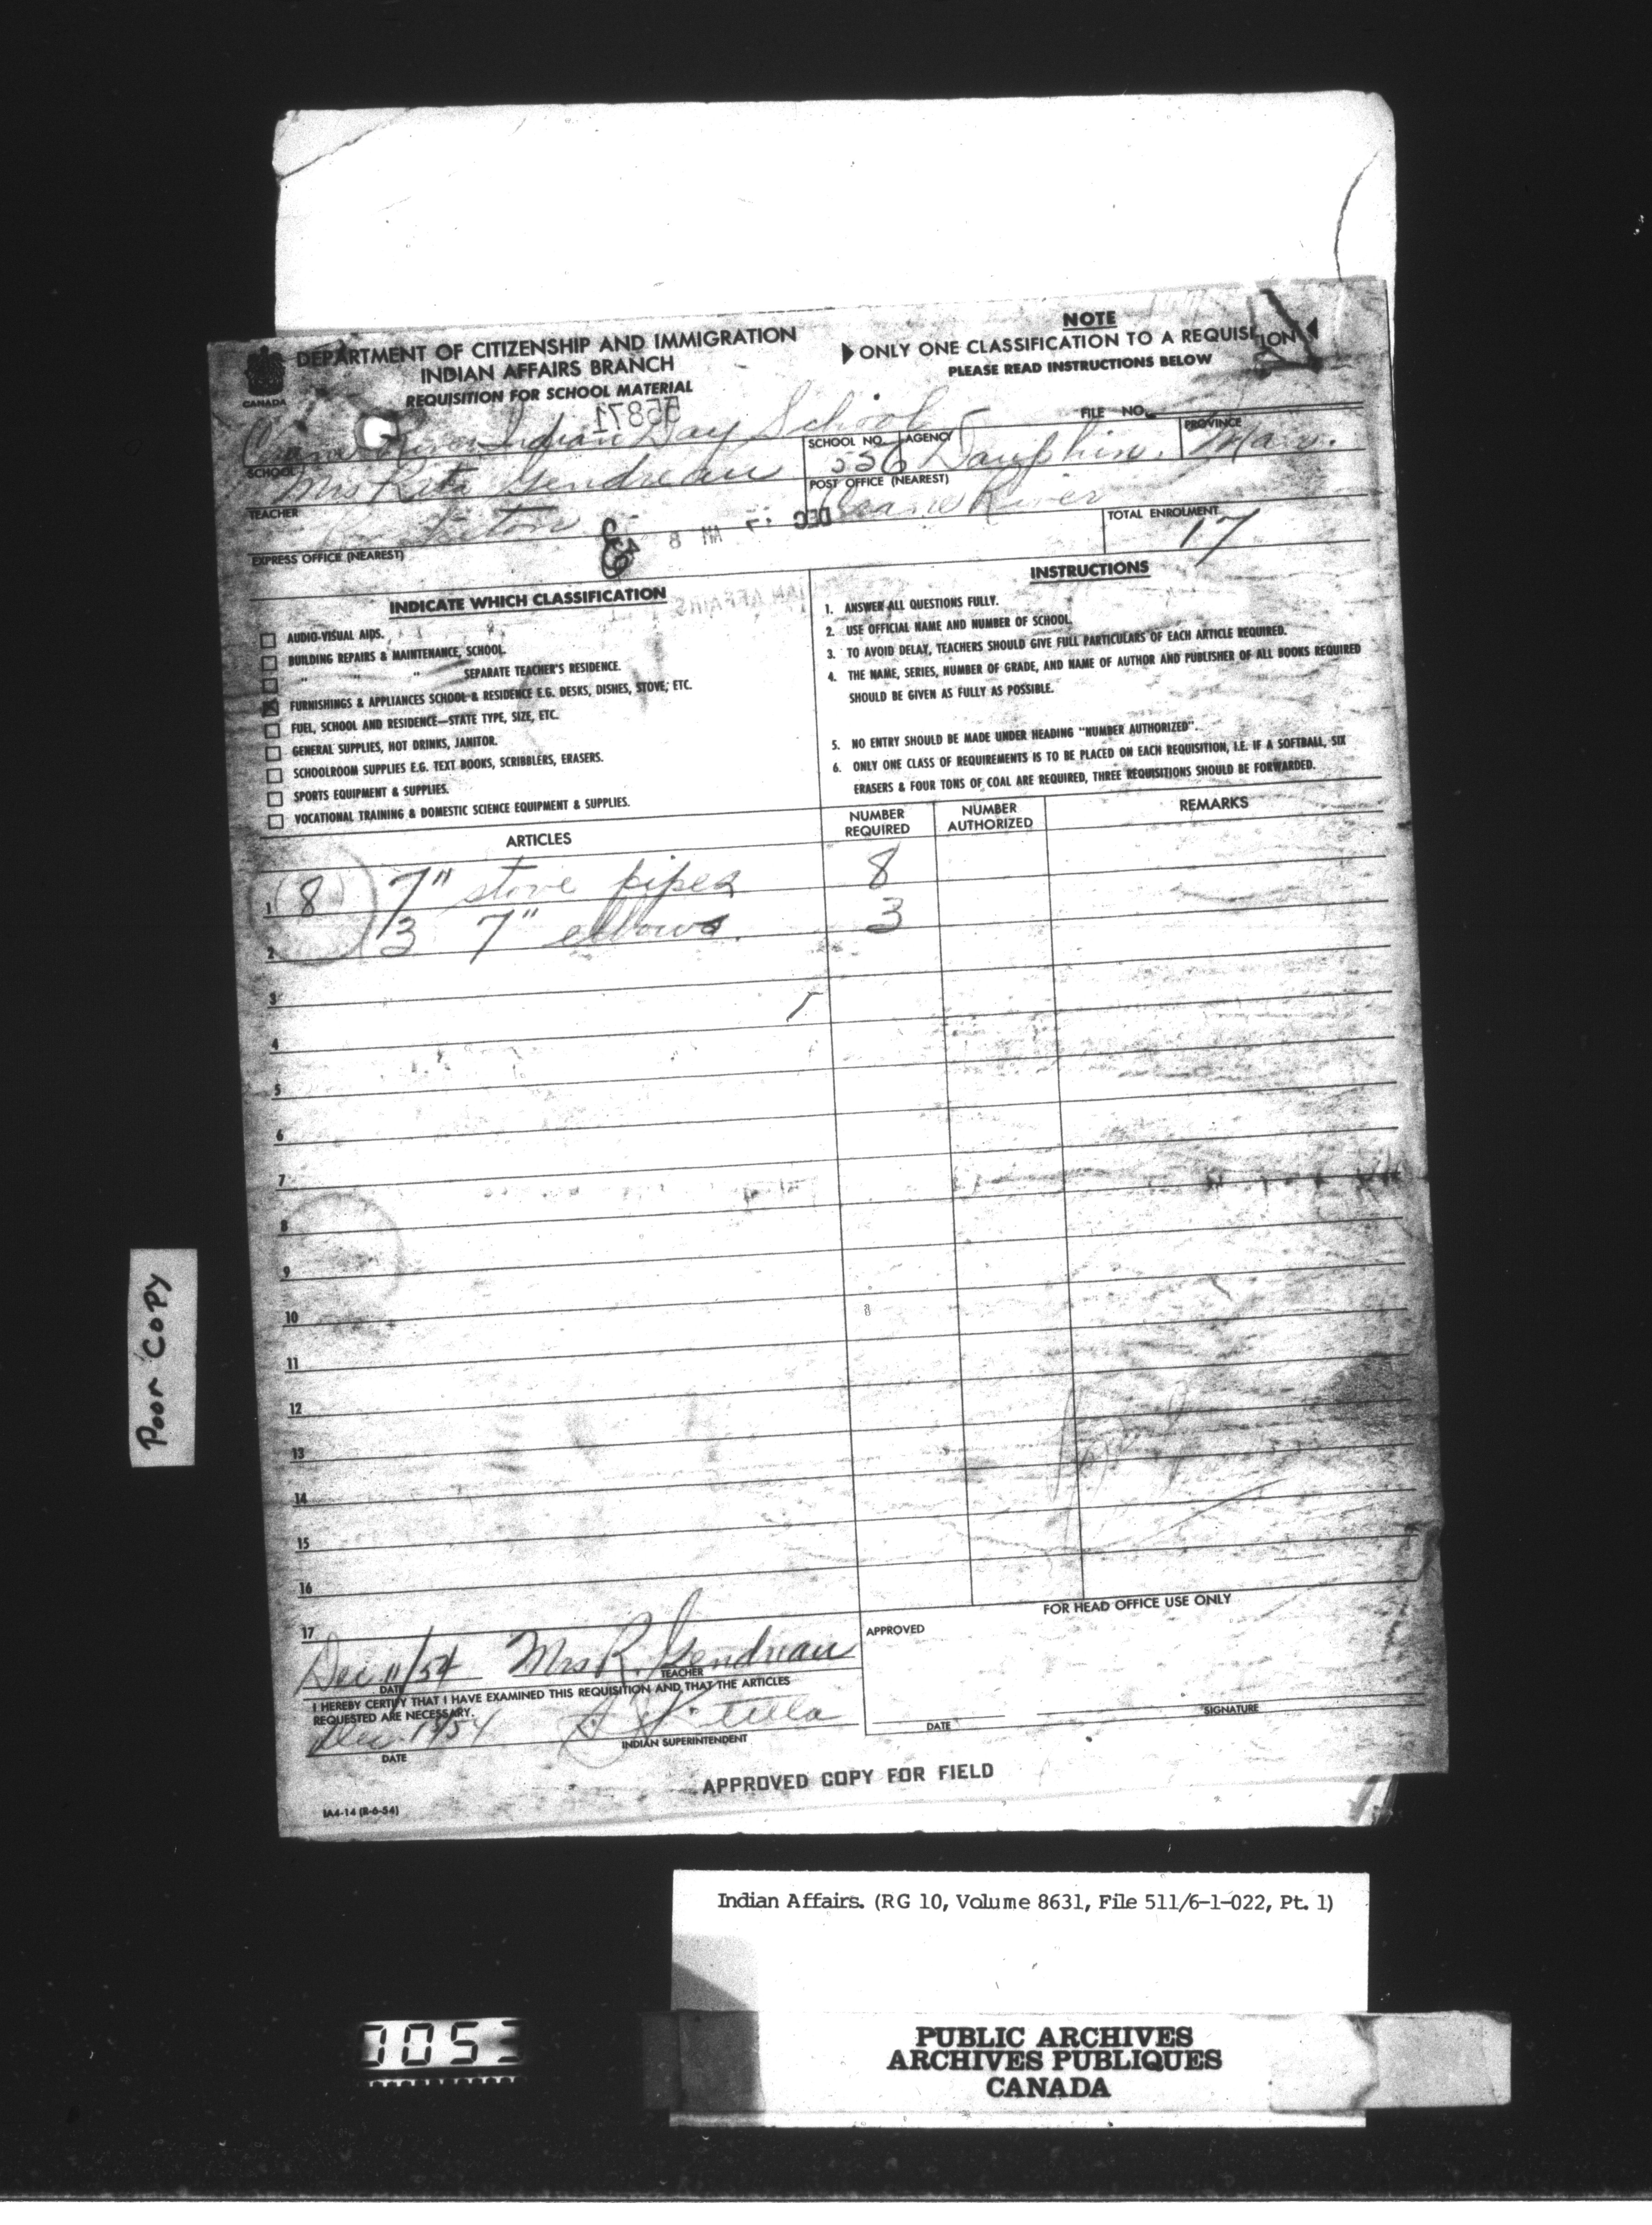 DEPARTMENT OF CITIZENSHIP AND IMMIGRATION
INDIAN AFFAIRS BRANCH
REQUISITION FOR SCHOOL MATERIAL
CANADA
NOTE
ONLY ONE CLASSIFICATION TO A REQUISITION
PLEASE READ INSTRUCTIONS BELOW
55871
FILE NO.
River Indian Day School
SCHOOL
SCHOOL NO. 526
AGENCY Dauphin.
PROVINCE Man.
Mrs Rita Gendreau
TEACHER
POST OFFICE (NEAREST)
Crane River
DEC 17 AM 8
EXPRESS OFFICE (NEAREST)
TOTAL ENROLMENT
17
INDIAN AFFAIRS
INDICATE WHICH CLASSIFICATION
AUDIO-VISUAL AIDS.
BUILDING REPAIRS & MAINTENANCE, SCHOOL.
" " " SEPARATE TEACHER'S RESIDENCE.
FURNISHINGS & APPLIANCES SCHOOL & RESIDENCE E.G. DESKS, DISHES, STOVE, ETC.
FUEL, SCHOOL AND RESIDENCE—STATE TYPE, SIZE, ETC.
GENERAL SUPPLIES, HOT DRINKS, JANITOR.
SCHOOLROOM SUPPLIES E.G. TEXT BOOKS, SCRIBBLERS, ERASERS.
SPORTS EQUIPMENT & SUPPLIES.
VOCATIONAL TRAINING & DOMESTIC SCIENCE EQUIPMENT & SUPPLIES.
INSTRUCTIONS
1. ANSWER ALL QUESTIONS FULLY.
2. USE OFFICIAL NAME AND NUMBER OF SCHOOL.
3. TO AVOID DELAY, TEACHERS SHOULD GIVE FULL PARTICULARS OF EACH ARTICLE REQUIRED.
4. THE NAME, SERIES, NUMBER OF GRADE, AND NAME OF AUTHOR AND PUBLISHER OF ALL BOOKS REQUIRED
SHOULD BE GIVEN AS FULLY AS POSSIBLE.
5. NO ENTRY SHOULD BE MADE UNDER HEADING "NUMBER AUTHORIZED".
6. ONLY ONE CLASS OF REQUIREMENTS IS TO BE PLACED ON EACH REQUISITION, I.E. IF A SOFTBALL, SIX
ERASERS & FOUR TONS OF COAL ARE REQUIRED, THREE REQUISITIONS SHOULD BE FORWARDED.
ARTICLES
NUMBER REQUIRED
NUMBER AUTHORIZED
REMARKS
1 8 7" stove pipes 8
2 3 7" elbows. 3
3
4
5
6
7
8
9
10
11
12
13
14
15
16
17
Dec 11/54 Mrs R. Gendreau
DATE TEACHER
I HEREBY CERTIFY THAT I HAVE EXAMINED THIS REQUISITION AND THAT THE ARTICLES
REQUESTED ARE NECESSARY.
DATE INDIAN SUPERINTENDENT
FOR HEAD OFFICE USE ONLY
APPROVED
DATE SIGNATURE
APPROVED COPY FOR FIELD
IA4-14 (R-6-54)
Poor Copy
Indian Affairs. (RG 10, Volume 8631, File 511/6-1-022, Pt. 1)
PUBLIC ARCHIVES
ARCHIVES PUBLIQUES
CANADA